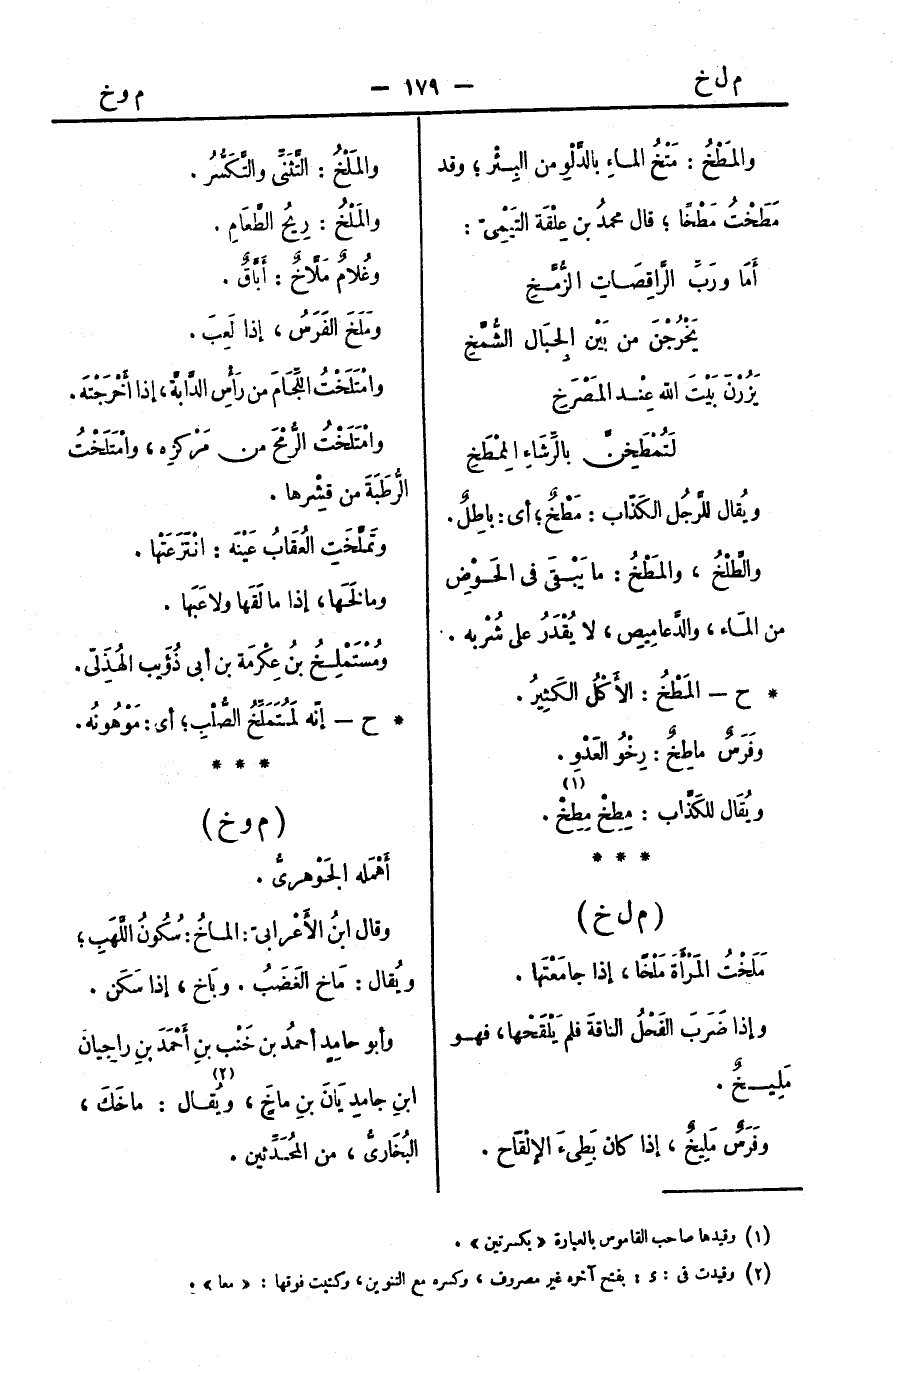 م ل خ
— ١٧٩ —
م و خ
والمَطْخُ : مَتْخُ الماءِ بالدَّلْوِ من البِئْر ؛ وقد
مَطَخْتُ مَطْخًا ؛ قال محمدُ بن عِلْقَة التَّيْمِىّ :
أَمَا ورَبِّ الرَّاقِصَاتِ الزُّمَّخِ
يَخْرُجْنَ من بَيْن الجِبَال الشُّمَّخِ
يَزُرْنَ بَيْتَ الله عِنْد المَصْرَخِ
لَتُمْطَخِنَّ بالرِّشَاءِ المِمْطَخِ
ويُقال للرَّجُل الكَذّاب : مَطْخٌ ؛ أى : باطِلٌ .
والطَّلْخُ ، والمَطْخُ : ما يَبْقَى فى الحَوْضِ
من المَاء ، والدَّعامِيص ، لا يُقْدَرُ على شُرْبه .
* ح — المَطْخُ : الأَكْلُ الكَثِيرُ .
وفَرَسٌ ماطِخٌ : رِخْوُ العَدْوِ .
ويُقَال للكَذَّاب : مِطِخْ مِطِخْ (١) .
* * *
( م ل خ )
مَلَخْتُ المَرْأَةَ مَلْخًا ، إذا جامَعْتَها .
وإذا ضَرَبَ الفَحْلُ الناقةَ فلم يَلْقَحْها ، فهو
مَلِيخٌ .
وفَرَسٌ مَلِيخٌ ، إذا كان بَطِىءَ الإلْقَاح .
والمَلْخُ : التَّثَنِّى والتَّكَسُّرُ .
والمَلْخُ : رِيحُ الطَّعَامِ .
وغُلامٌ مَلَّاخٌ : أَبَّاقٌ .
ومَلَخَ الفَرَسُ ، إذا لَعِبَ .
وامْتَلَخْتُ اللِّجَامَ من رَأْسِ الدَّابَّة ، إذا أَخْرَجْتَه .
وامْتَلَخْتُ الرُّمْحَ من مَرْكزِه ، وامْتَلَخْتُ
الرُّطَبَةَ من قِشْرها .
وتَمَلَّخَتِ العُقَابُ عَيْنَه : انْتَزَعَتْها .
ومالَخَها ، إذا مالَقَها ولاعَبَها .
ومُسْتَمْلِخُ بنُ عِكْرِمَة بن أبى ذُؤَيب الهُذَلىّ .
* ح — إنّه لَمُتَمَلِّخُ الصُّلْبِ ؛ أى : مَوْهُونُه .
* * *
( م و خ )
أَهْمَله الجَوْهرىُّ .
وقال ابنُ الأَعْرابىّ : الماخُ : سُكُونُ اللَّهَبِ ؛
ويُقال : مَاخ الغَضَبُ . وبَاخ ، إذا سَكَن .
وأبو حامِدٍ أحمدُ بن خَنْب بنِ أَحْمَدَ بنِ راجِيانَ
ابنِ حامِدِيَانَ بنِ ماخٍ (٢) ، ويُقال : ماخَكَ ،
البُخَارىُّ ، من المُحَدِّثين .
(١) وقيدها صاحب القاموس بالعبارة « بكسرتين » .
(٢) وقيدت فى : ى : بفتح آخره غير مصروف ، وكسره مع التنوين ، وكتبت فوقها : « معا » .